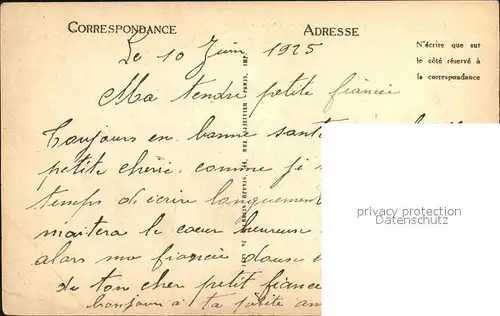 CORRESPONDANCE
ADRESSE
N'écrire que sur
le côté réservé à
la correspondance
Le 10 Juin 1925
Ma tendre petite fiancée
Toujours en bonne santé
petite chérie comme je
temps d'écrire longuement
le coeur heureuse
alors ma fiancée douce
de ton cher petit fiancé
bonjour à ta petite
privacy protection
Datenschutz